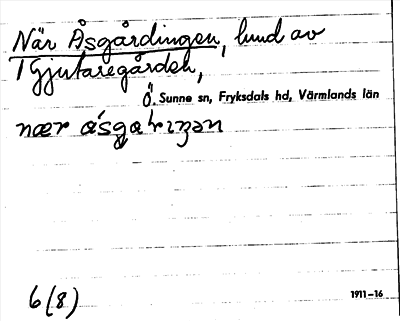 När Åsgårdingen, lund av
Gjutaregården,
Ö. Sunne sn, Fryksdals hd, Värmlands län
nær åsgaʹrɪŋən
6 (8)
1911–16